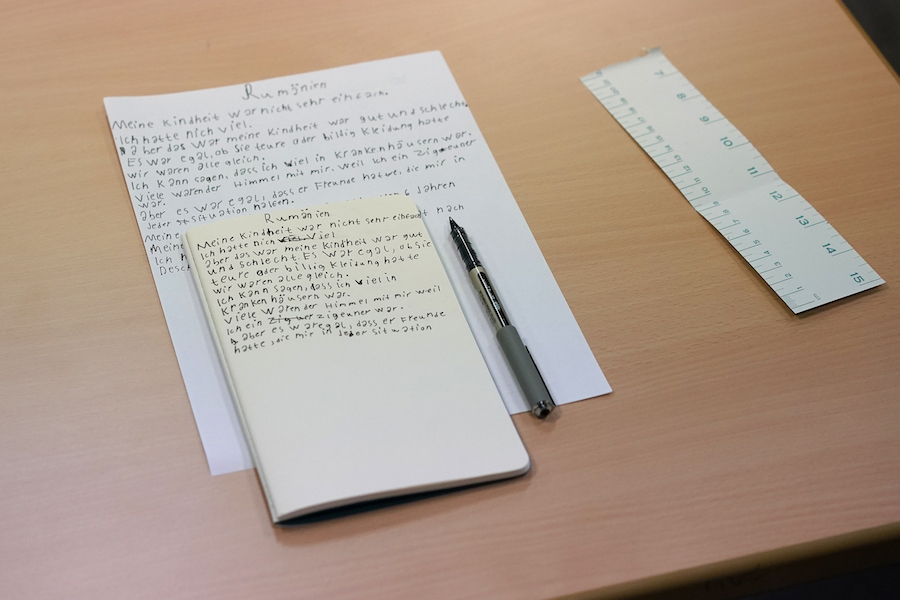 Rumänien
Meine Kindheit war nicht sehr einfach.
Ich hatte nich viel.
aber das war meine Kindheit war gut und schlecht
Es war egal, ob sie teure oder billig Kleidung hatte
wir waren alle gleich.
Ich kann sagen, dass ich viel in Krankenhäusern war.
Viele warender Himmel mit mir. weil ich ein Zigeuner
war.
aber es war egal, dass er Freunde hatte, die mir in
Jeder situation
6 Jahren
Meine
nach
Meine
Ich h
Desc
Rumänien
Meine Kindheit war nicht sehr einfach
Ich hatte nich viel viel
aber das war meine Kindheit war gut
und schlecht Es war egal, ob sie
teure oder billig Kleidung hatte
wir waren alle gleich.
Ich kann sagen, dass ich viel in
Krankenhäusern war.
Viele warender Himmel mit mir weil
Ich ein Zigeuner war.
aber es war egal, dass er Freunde
hatte, die mir in Jeder situation
7
8
9
10
11
12
13
14
15